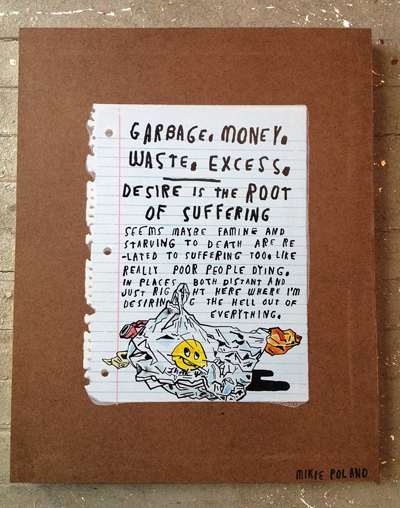 GARBAGE. MONEY.
WASTE. EXCESS.
DESIRE IS THE ROOT
OF SUFFERING
SEEMS MAYBE FAMINE AND
STARVING TO DEATH ARE RE
-LATED TO SUFFERING TOO. LIKE
REALLY POOR PEOPLE DYING.
IN PLACES BOTH DISTANT AND
JUST RIGHT HERE WHERE I'M
DESIRING THE HELL OUT OF
EVERYTHING.
MIKIE POLAND